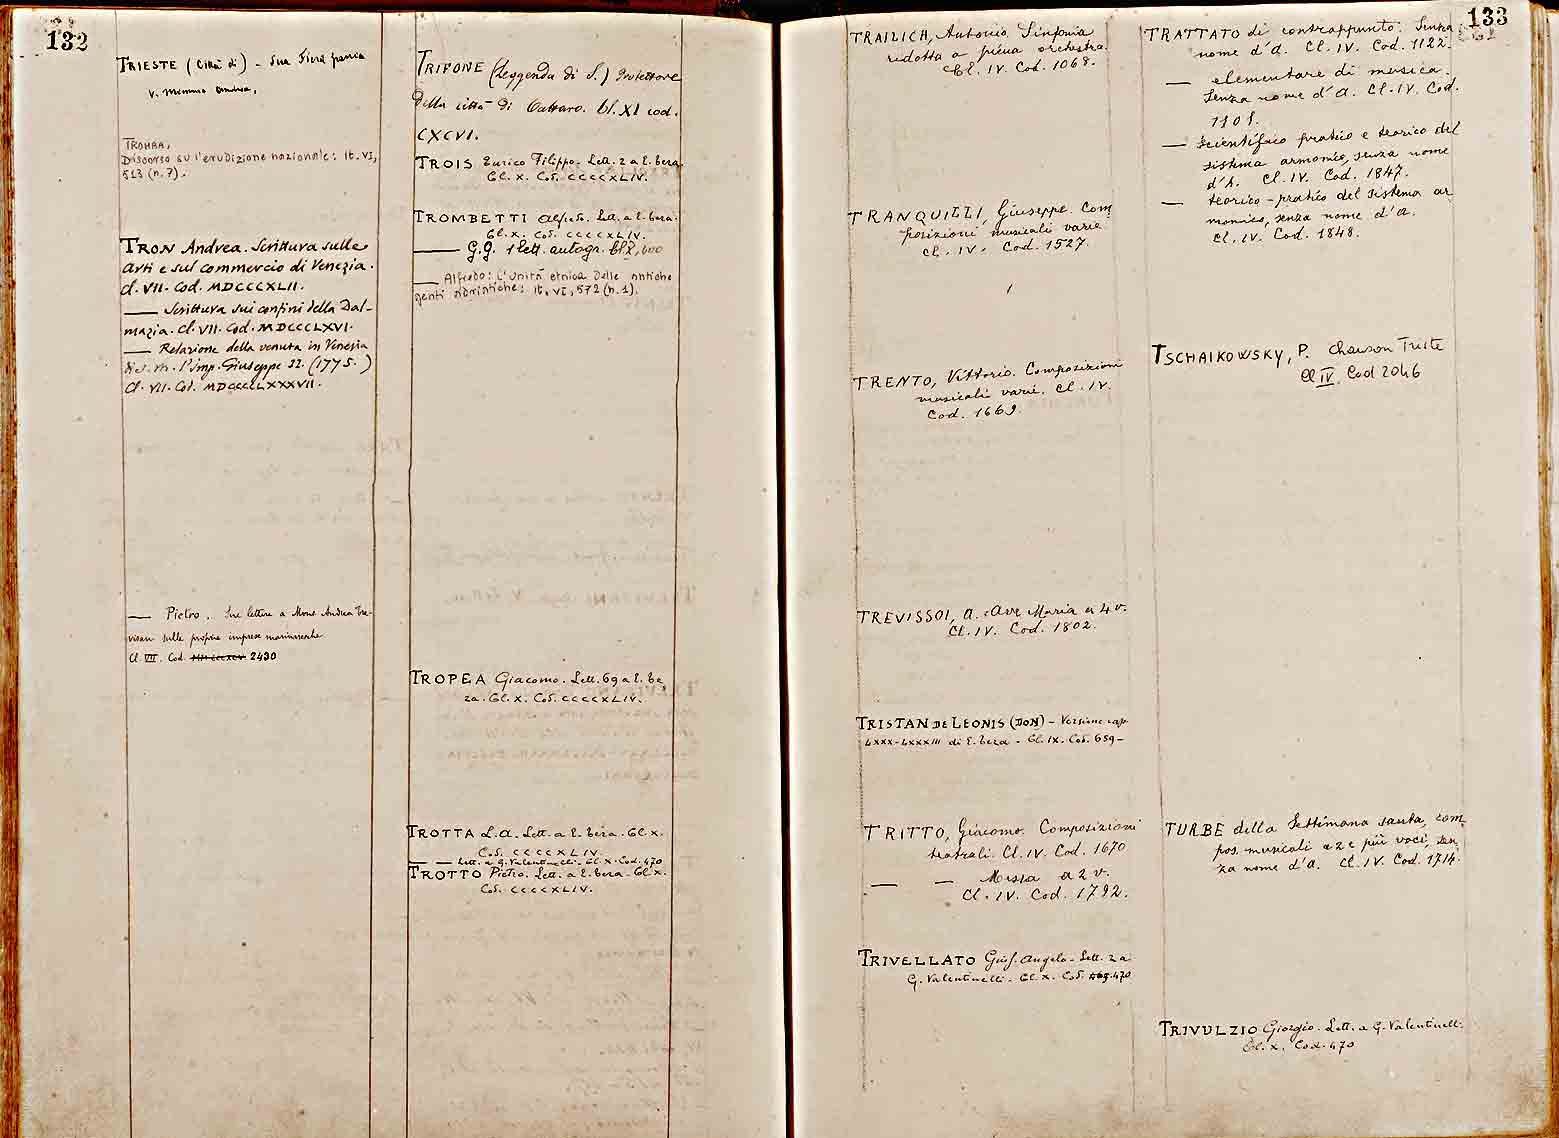 132
TRIESTE (Città di) - Sua Fiera franca
v. Memmo Andrea.
TROMBA,
Discorso su l'erudizione nazionale: It. VI,
513 (n. 7).
TRON Andrea. Scrittura sulle
arti e sul commercio di Venezia.
Cl. VII. Cod. MDCCCXLII.
— Scrittura sui confini della Dal-
mazia. Cl. VII. Cod. MDCCCLXVI.
— Relazione della venuta in Venezia
di S. M. l'imp. Giuseppe II. (1775.)
Cl. VII. Cod.
— Pietro. Sue lettere a Mons. Andrea Tre-
visan sulle proprie imprese marinaresche
Cl. VII. Cod. 2430
TRIFONE (Leggenda di S.) protettore
della città di Cattaro. Cl. XI cod.
CXCVI.
TROIS Enrico Filippo. Lett. 2 a E. Teza.
Cl. X. Cod. CCCCXLIV.
TROMBETTI Alfredo. Lett. a E. Teza.
Cl. X. Cod. CCCCXLIV.
— G.G. 1 lett. autogr. Cl X, 600
— Alfredo: L'unità etnica delle antiche
genti adriatiche: It. VI, 572 (n. 1).
TROPEA Giacomo. Lett. 69 a E. Te
za. Cl. X. Cod. CCCCXLIV.
TROTTA L. A. Lett. a E. Teza. Cl. X.
Cod. CCCCXLIV.
— — Lett. a G. Valentinelli. Cl. X. Cod. 470
TROTTO Pietro. Lett. a E. Teza. Cl. X.
Cod. CCCCXLIV.
133
TRAILICH, Antonio Sinfonia
ridotta a piena orchestra.
Cl. IV. Cod. 1068.
TRANQUILLI, Giuseppe. Com
posizioni musicali varie
Cl. IV. Cod. 1527.
TRENTO, Vittorio. Composizioni
musicali varie. Cl. IV.
Cod. 1669.
TREVISSOI, A. Ave Maria a 4 v.
Cl. IV. Cod. 1802.
TRISTAN DE LEONIS (DON) - Versione cap.
LXXX-LXXXIII di E. Teza - Cl. IX. Cod. 659 -
TRITTO, Giacomo. Composizioni
teatrali. Cl. IV. Cod. 1670
— — Messa a 2 v.
Cl. IV. Cod. 1792.
TRIVELLATO Gius. Angelo - Lett. 2 a
G. Valentinelli - Cl. X. Cod. 470
TRATTATO di contrappunto. Senza
nome d'A. Cl. IV. Cod. 1122.
— elementare di musica.
Senza nome d'A. Cl. IV. Cod.
1101.
— Scientifico pratico e teorico del
sistema armonico, senza nome
d'A. Cl. IV. Cod. 1847.
— teorico-pratico del sistema ar
monico, senza nome d'A.
Cl. IV. Cod. 1848.
TSCHAIKOWSKY, P. Chanson Triste
Cl IV. Cod 2046
TURBE della Settimana santa, com
pos. musicali a 2 e più voci, sen
za nome d'A. Cl. IV. Cod. 1714.
TRIVULZIO Giorgio. Lett. a G. Valentinelli.
Cl. X. Cod. 470